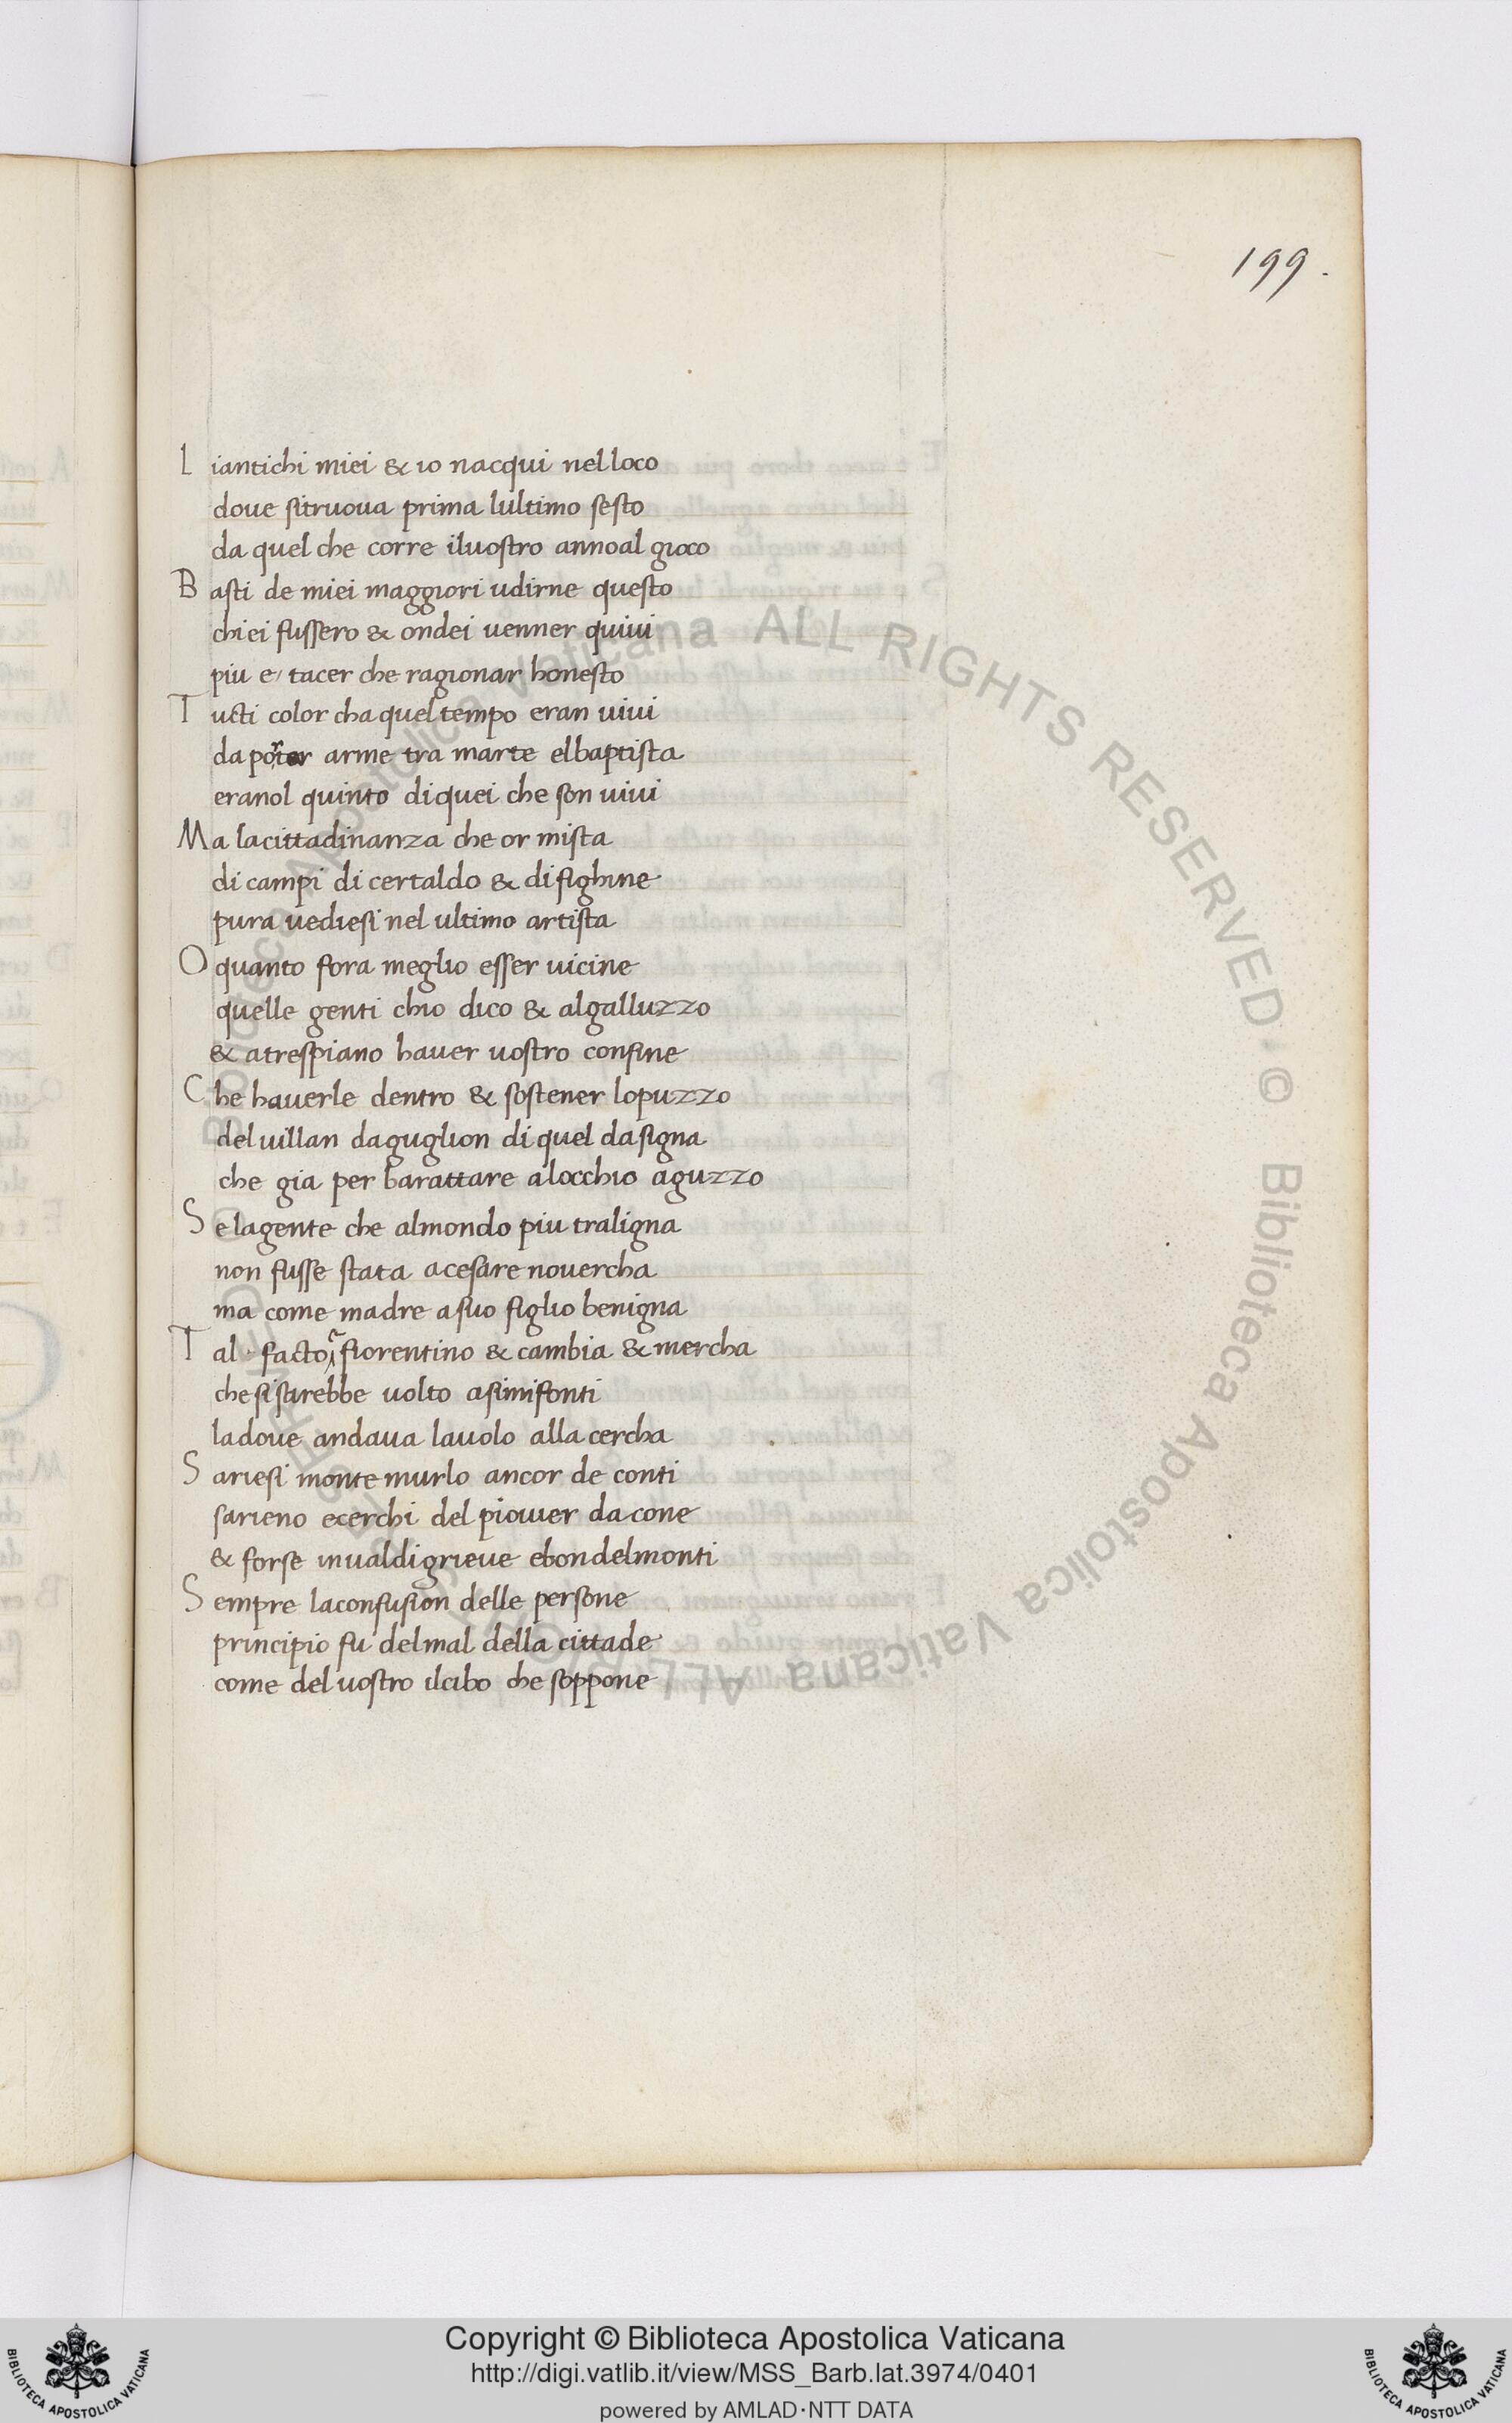 199.
L iantichi miei & io nacqui nel loco
doue sitruoua prima lultimo sesto
da quel che corre iluostro annoal gioco
B asti de miei maggiori udirne questo
chi ei fussero & ondei uenner quiui
piu e tacer che ragionar honesto
T ucti color cha quel tempo eran uiui
da portar arme tra marte elbaptista
eranol quinto di quei che son uiui
Ma lacittadinanza che or mista
di campi di certaldo & di fighine
pura uediesi nel ultimo artista
O quanto fora meglio esser uicine
quelle genti chio dico & algalluzzo
& atrespiano hauer uostro confine
C he hauerle dentro & sostener lopuzzo
del uillan daguglion di quel dasigna
che gia per barattare a locchio aguzzo
S e lagente che almondo piu traligna
non fusse stata acesare nouercha
ma come madre asuo figlio benigna
T al facto e fiorentino & cambia & mercha
che sisarebbe uolto asimifonti
ladoue andaua lauolo alla cercha
S ariesi monte murlo ancor de conti
sarieno ecerchi del piouier da cone
& forse inualdigrieue ebondelmonti
S empre laconfusion delle persone
principio fu delmal della cittade
come del uostro ilcibo che soppone
Biblioteca Apostolica Vaticana ALL RIGHTS RESERVED © Biblioteca Apostolica Vaticana ALL RIGHTS RESERVED ©
Copyright © Biblioteca Apostolica Vaticana
http://digi.vatlib.it/view/MSS_Barb.lat.3974/0401
powered by AMLAD·NTT DATA
BIBLIOTECA APOSTOLICA VATICANA
BIBLIOTECA APOSTOLICA VATICANA